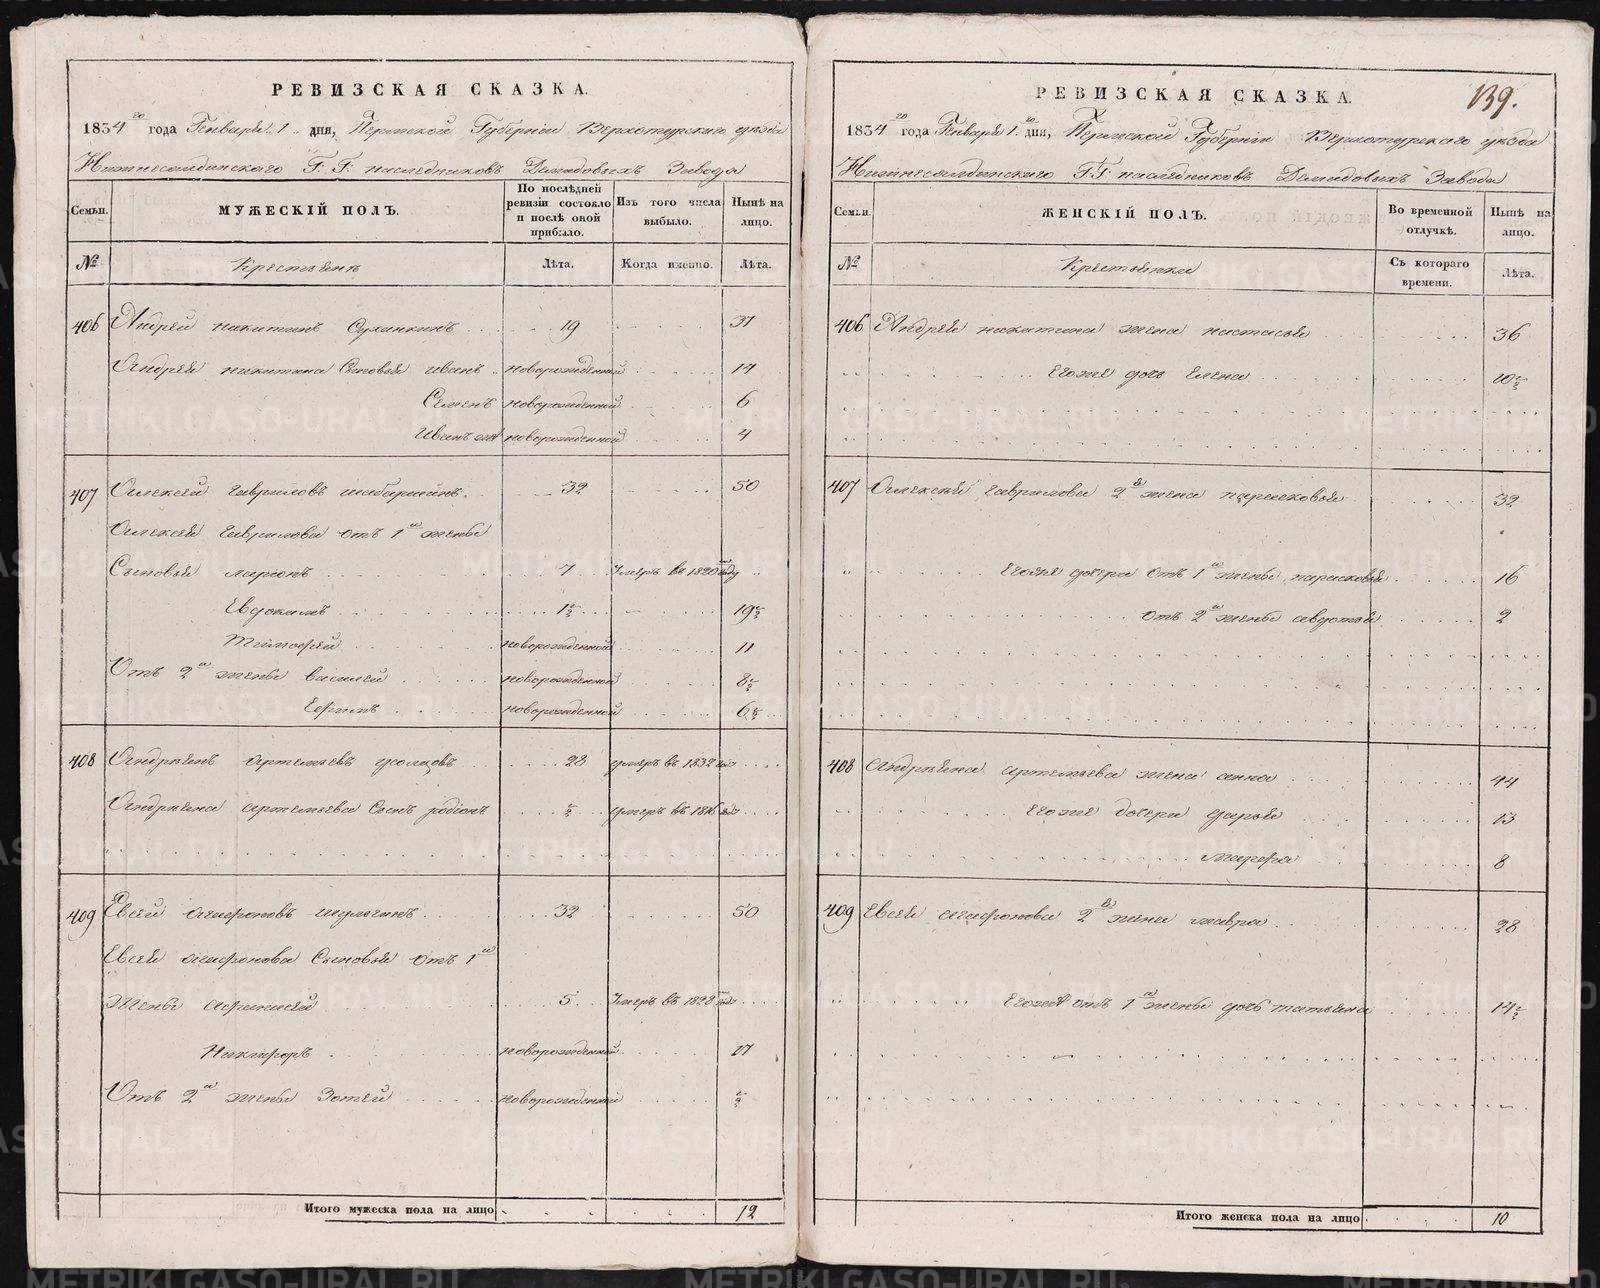 РЕВИЗСКАЯ СКАЗКА.
1834го года Генваря 1 дня, Пермской Губернии Верхотурского уезда
Нижнесалдинского Г. Г. наследниковъ Демидовыхъ Завода
Семьи.
МУЖЕСКІЙ ПОЛЪ.
По послѣдней ревизіи состояло и послѣ оной прибыло.
Изъ того числа выбыло.
Нынѣ на лицо.
№ Крестьянъ Лѣта. Когда именно. Лѣта.
406 Андрей никитинъ Суханкинъ 19 37
Андрея никитина Сыновья иванъ новорожденной 14
Семенъ новорожденной 6
Иванъ же новорожденной 4
407 Алексей гавриловъ 32 50
Алексея гаврилова отъ 1й жены
Сыновья ларионъ 7 Умеръ въ 1820 году
Евдокимъ 1½ 19½
Тимофей новорожденной 11
Отъ 2й жены василей новорожденной 8½
Ефимъ новорожденной 6½
408 Андреянъ артемьевъ усолцовъ 28 умеръ въ 1832 году
Андреяна артемьева Сынъ родіонъ ½ умеръ въ 1816 году
409 Евсей агафоновъ шулгинъ 32 50
Евсея агафонова Сыновья отъ 1й
жены афанасей 5 Умеръ въ 1828 году
Никифоръ новорожденной 17
Отъ 2й жены Зотей новорожденной ½
Итого мужеска пола на лицо 12
139.
РЕВИЗСКАЯ СКАЗКА.
1834го года Генваря 1го дня, Пермской Губерніи Верхотурскаго уезда
Нижнесалдинского Г. Г. наследниковъ Демидовыхъ Завода
Семьи.
ЖЕНСКІЙ ПОЛЪ.
Во временной отлучкѣ.
Нынѣ на лицо.
№ Крестьянки Съ котораго времени. Лѣта.
406 Андрея никитина жена настасья 36
Егоже дочь Елена 10½
407 Алексея гаврилова 2я жена парасковья 32
Егоже дочери отъ 1й жены парасковья 16
отъ 2й жены авдотья 2
408 Андреяна артемьева жена анна 44
Егоже дочери дарья 13
марфа 8
409 Евсея агафонова 2я жена мавра 28
Егоже отъ 1й жены дочь татьяна 14½
Итого женска пола на лицо 10
METRIKI.GASO-URAL.RU